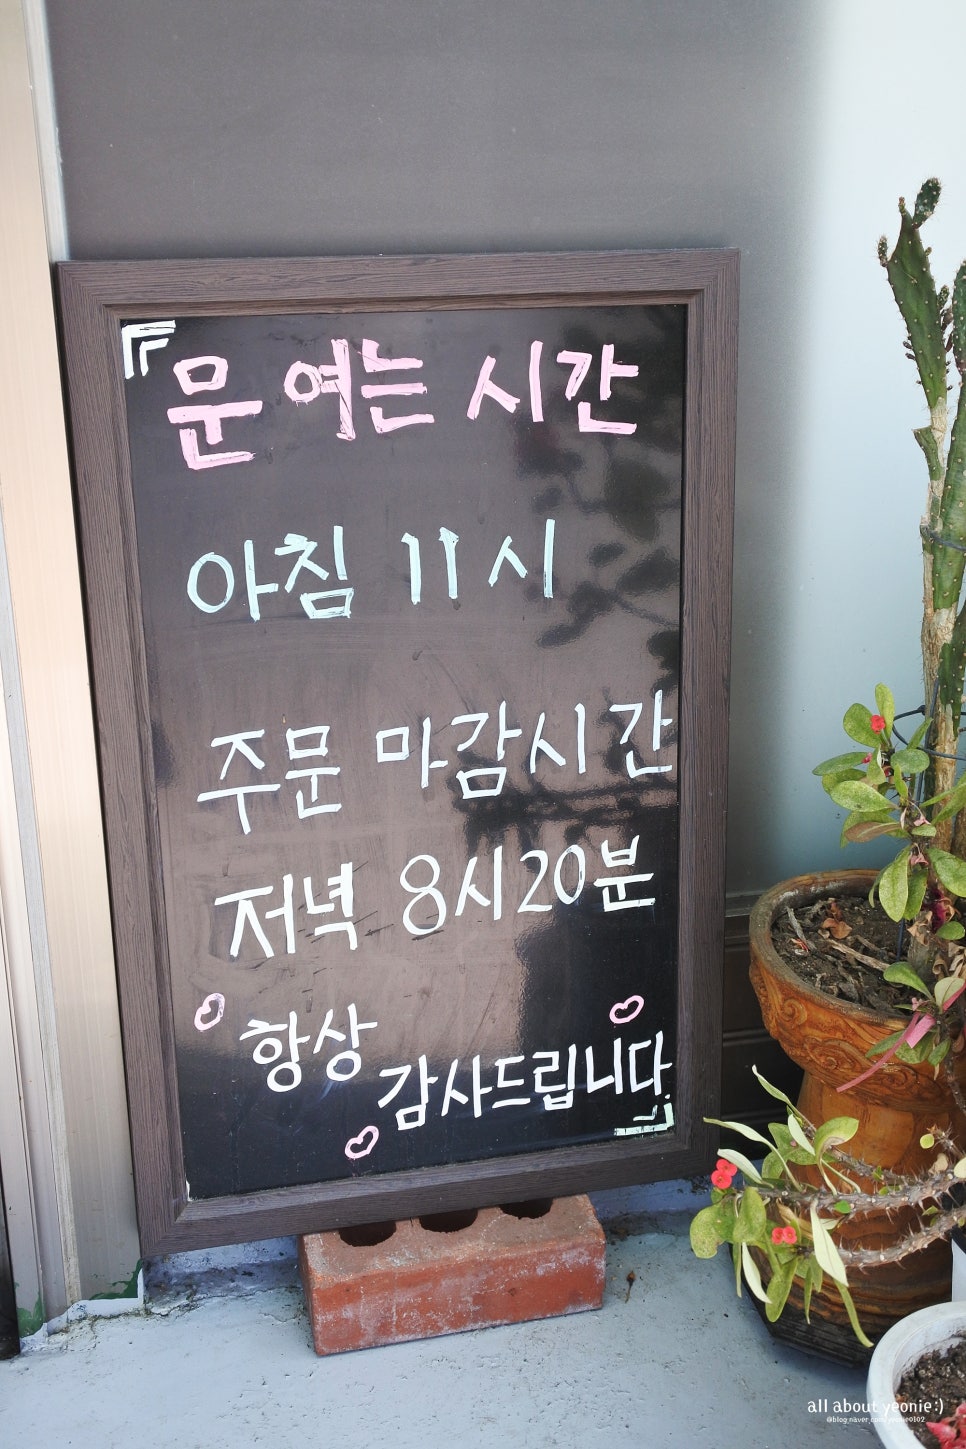 문 여는 시간
아침 11시
주문 마감시간
저녁 8시20분
항상
감사드립니다.
all about yeonie :)
@blog.naver.com/yeonie0102